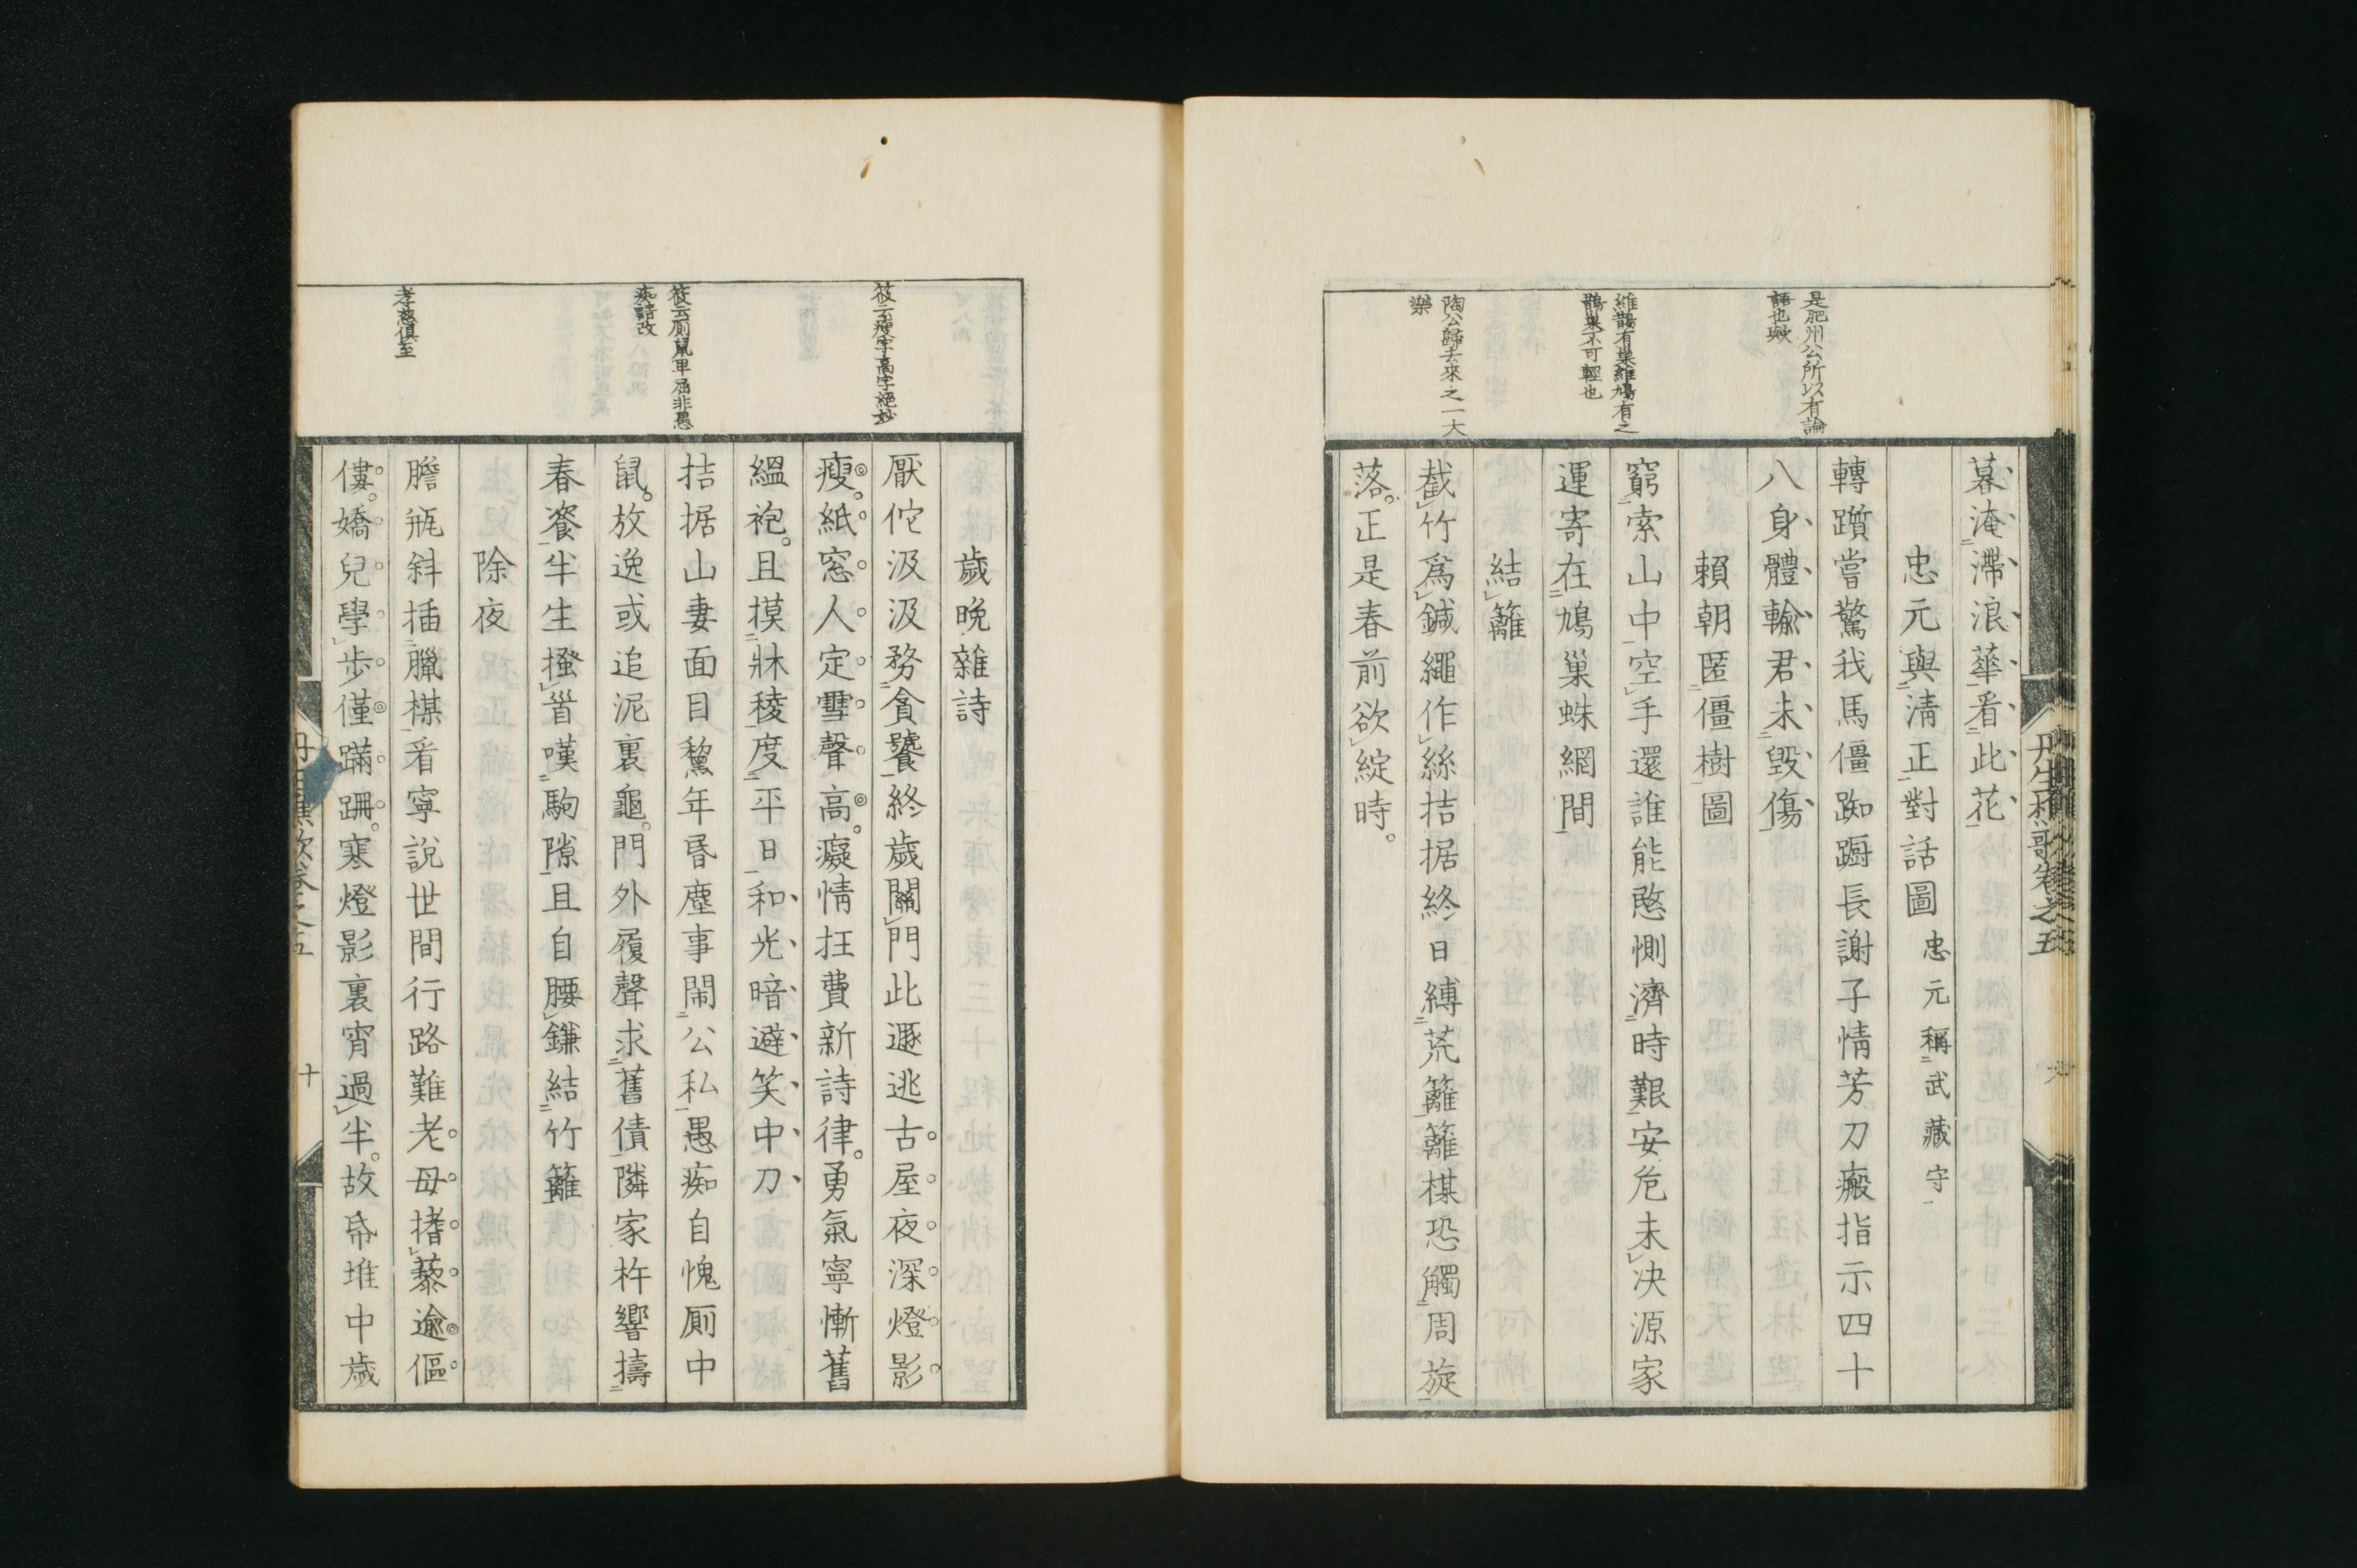 是肥州公所以有論
語也歟
維鵲有巢維鳩有之
鵲巢不可輕也
陶公歸去來之一大
樂
暮淹滯浪華看此花
忠元與清正對話圖 忠元稱武藏守
轉躓嘗驚我馬僵踟蹰長謝子情芳刀瘢指示四十
八身體輸君未毀傷
賴朝匿僵樹圖
窮索山中空手還誰能憨惻濟時艱安危未決源家
運寄在鳩巢蛛網間
結籬
截竹爲鍼繩作絲拮据終日縛荒籬籬棋恐觸周旋
落正是春前欲綻時
筱云瘦字高字絕妙
筱云厠鼠卑屈非愚
痴請改
孝慈俱至
歲晚雜詩
厭佗汲汲務貪饕終歲關門此遯逃古屋夜深燈影
瘦紙窓人定雪聲高癡情抂費新詩律勇氣寧慚舊
縕袍且摸牀稜度平日和光暗避笑中刀
拮据山妻面目黧年昏塵事鬧公私愚痴自愧厠中
鼠放逸或追泥裏龜門外履聲求舊債隣家杵響擣
春餈半生搔首嘆駒隙且自腰鎌結竹籬
除夜
膽瓶斜插臘棋看寧說世間行路難老母揩藜逾傴
僂嬌兒學步僅蹣跚寒燈影裏宵過半故帋堆中歲
丹生樵歌卷之五
十